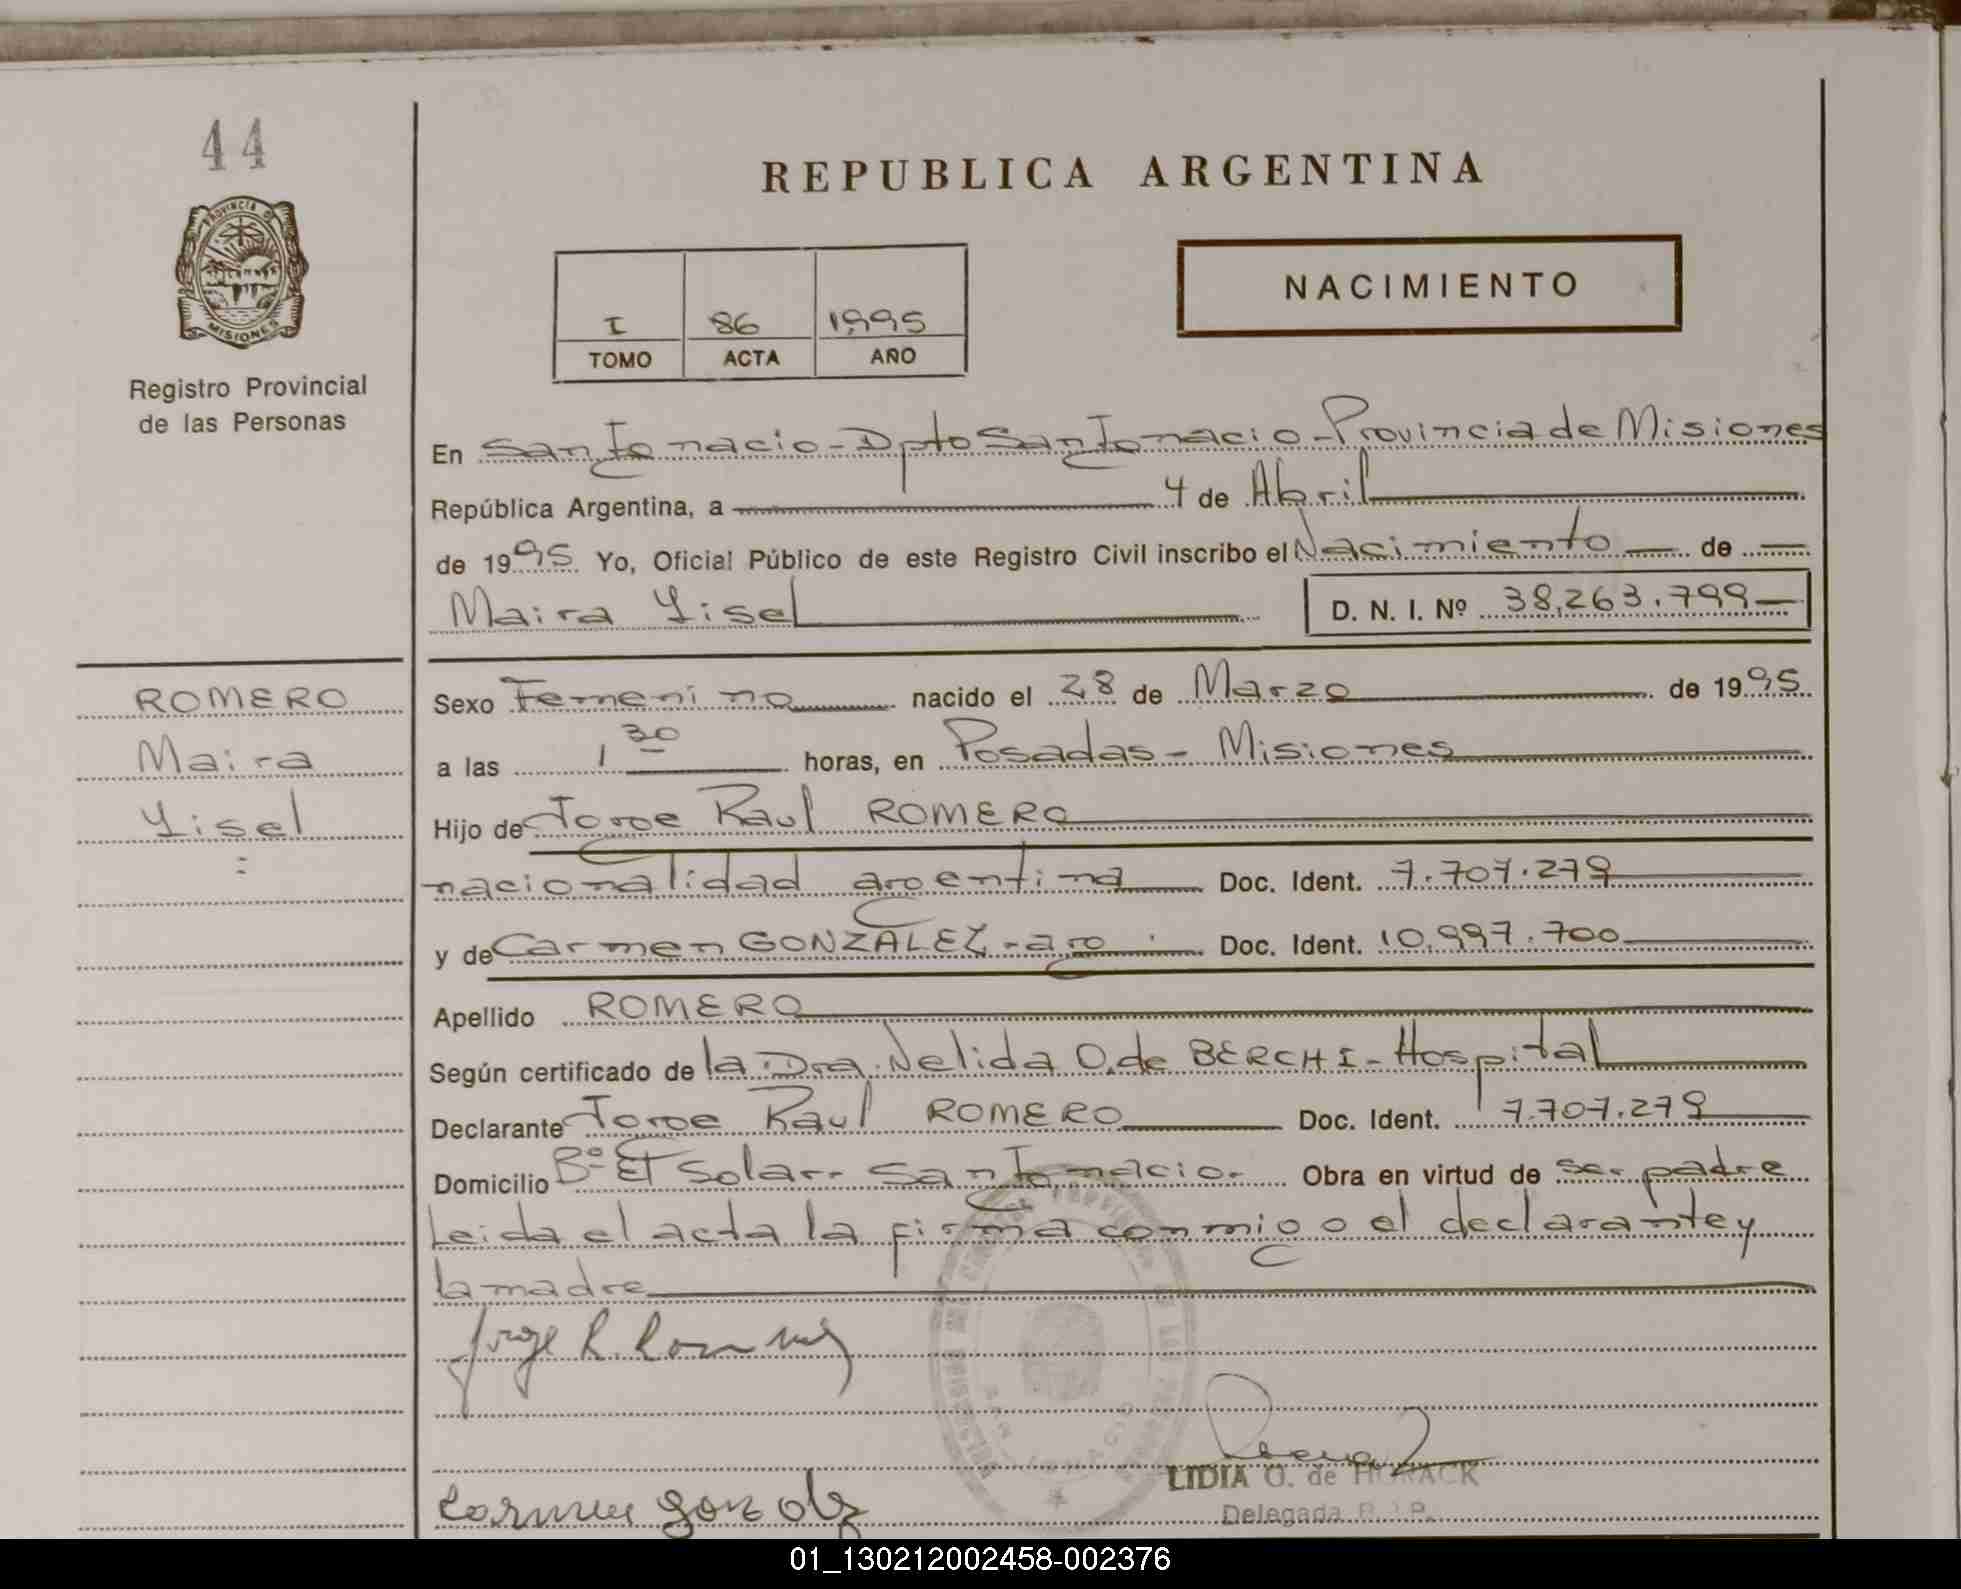 44
REPUBLICA ARGENTINA
PROVINCIA DE
MISIONES
Registro Provincial
de las Personas
I 86 1995
TOMO ACTA AÑO
NACIMIENTO
En San Ignacio - Dpto San Ignacio - Provincia de Misiones
República Argentina, a 4 de Abril
de 1995 Yo, Oficial Público de este Registro Civil inscribo el Nacimiento de
Maira Yisel D. N. I. Nº 38.263.799
ROMERO
Maira
Yisel
Sexo Femenino nacido el 28 de Marzo de 1995
a las 1 30 horas, en Posadas - Misiones
Hijo de Jorge Raul ROMERO
nacionalidad argentina Doc. Ident. 7.707.279
y de Carmen GONZALEZ - arg Doc. Ident. 10.997.700
Apellido ROMERO
Según certificado de la Dra. Nelida O. de BERCHI - Hospital
Declarante Jorge Raul ROMERO Doc. Ident. 7.707.279
Domicilio Bº El Solar - San Ignacio - Obra en virtud de ser padre
Leida el acta la firma conmigo el declarante y
la madre
Jorge R. Romero
LIDIA O. de HORACK
Delegada R.P.P.
Carmen Gonzalez
SAN IGNACIO
01_130212002458-002376